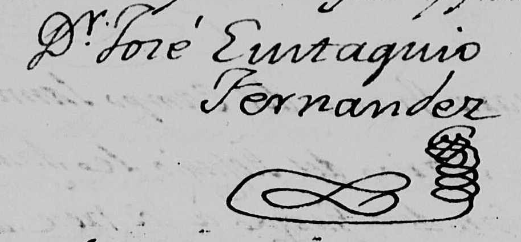 Dr. José Eustaquio
Fernandez